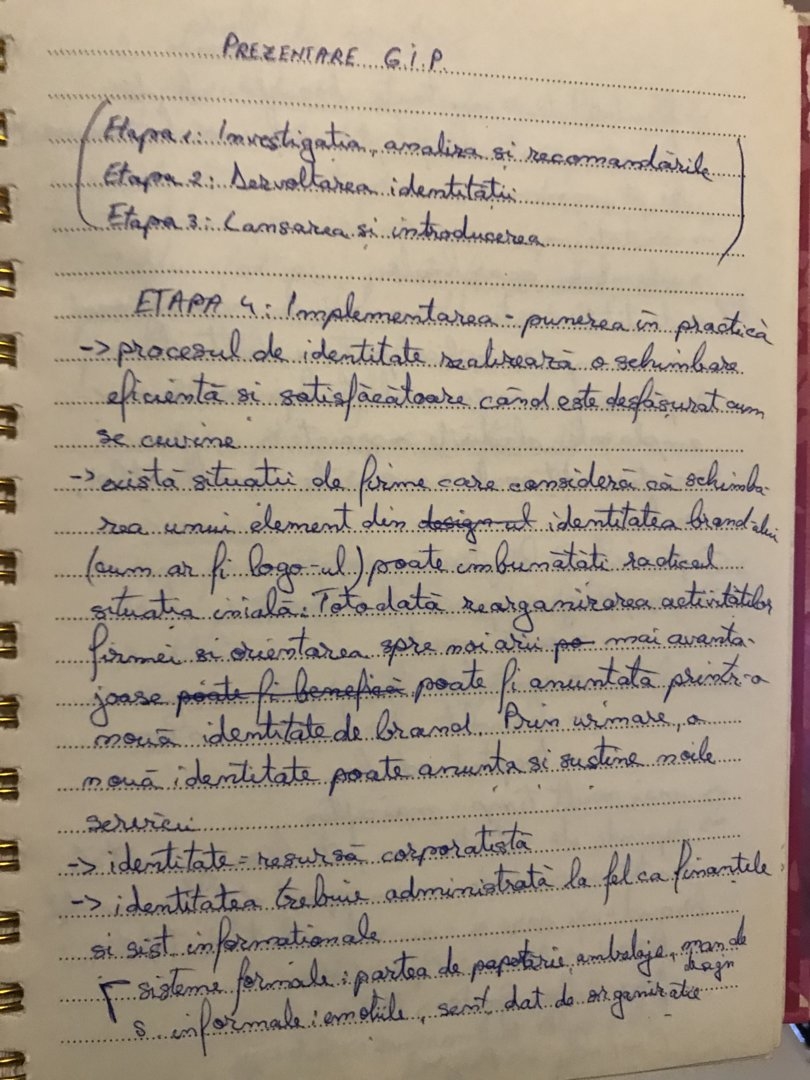 PREZENTARE G.I.P.
Etapa 1: Investigatia, analiza si recomandările
Etapa 2: Dezvoltarea identității
Etapa 3: Lansarea si introducerea
ETAPA 4: Implementarea - punerea în practică
-> procesul de identitate realizează o schimbare
eficientă si satisfăcătoare când este desfăsurat cum
se cuvine
-> există situatii de firme care consideră că schimba-
rea unui element din design-ul identitatea brand-ului
(cum ar fi logo-ul) poate îmbunătăti radical
situatia inială. Totodată reorganizarea activitătilor
firmei si orientarea spre noi arii po mai avanta-
joase poate fi benefică poate fi anuntata printr-o
nouă identitate de brand. Prin urmare, o
nouă identitate poate anunta si sustine noile
servicii
-> identitate = resursă corporatistă
-> identitatea trebuie administrată la fel ca finantele
si sist informationale
sisteme formale: partea de papetărie, ambalaje, man de
design
s informale: emotiile, sent. dat de organizatie